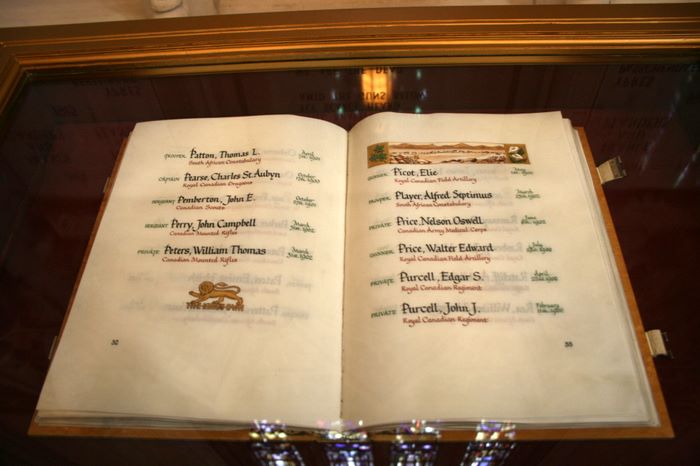 TROOPER Patton, Thomas L. April
South African Constabulary 1902
CAPTAIN Pearse, Charles St. Aubyn October
Royal Canadian Dragoons 1900
SERGEANT Pemberton, John E. October
Canadian Scouts 1901
SERGEANT Perry, John Campbell March
Canadian Mounted Rifles 1902
PRIVATE Peters, William Thomas March
Canadian Mounted Rifles 31st, 1902
32
Picot, Elie
Royal Canadian Field Artillery
TROOPER Player, Alfred Septimus March
South African Constabulary
PRIVATE Price, Nelson Oswell June
Canadian Army Medical Corps
GUNNER Price, Walter Edward July
Royal Canadian Field Artillery 1900
PRIVATE Purcell, Edgar S. April
Royal Canadian Regiment
PRIVATE Purcell, John J. February
Royal Canadian Regiment 1900
33